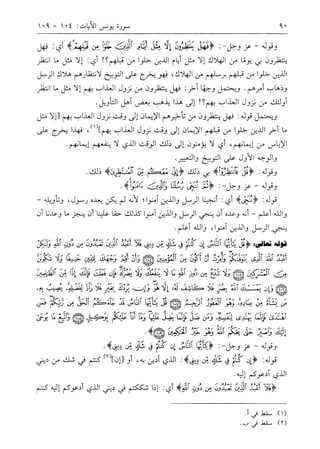 ٩٠ سورة يونس الآيات: ١٠٤ - ١٠٩
وقوله - عز وجل-: ﴿فَهَلْ يَنتَظِرُونَ إِلَّا مِثْلَ أَيَّامِ الَّذِينَ خَلَوْا مِن قَبْلِهِمْ﴾ أي: فهل
ينتظرون بي يومًا من الهلاك إلا مثل أيام الذين خلوا من قبلهم؟! أي: إلا مثل ما انتظر
الذين خلوا من قبلهم برسلهم من الهلاك، فهو يخرج على التوبيخ لانتظارهم هلاك الرسل
وذهاب أمرهم. ويحتمل وجهًا آخر: فهل ينتظرون من نزول العذاب بهم إلا مثل ما انتظر
أولئك من نزول العذاب بهم؟! إلى هذا يذهب بعض أهل التأويل.
ويحتمل قوله: فهل ينتظرون من تأخيرهم الإيمان إلى وقت نزول العذاب بهم [إلا مثل
ما أخر الذين خلوا من قبلهم الإيمان إلى وقت نزول العذاب بهم](١)، فهذا يخرج على
الإياس من إيمانهم، أي لا يؤمنون إلى ذلك الوقت الذي لا ينفعهم إيمانهم.
والوجه الأول على التوبيخ والتعيير.
وقوله: ﴿قُلْ فَانتَظِرُوا﴾ بي ذلك ﴿إِنِّي مَعَكُم مِّنَ الْمُنتَظِرِينَ﴾ ذلك.
وقوله - عز وجل-: ﴿ثُمَّ نُنَجِّي رُسُلَنَا وَالَّذِينَ آمَنُوا﴾.
قوله: ﴿ثُمَّ نُنَجِّي﴾ أي: أنجينا الرسل والذين آمنوا؛ لأنه لم يكن بعده رسول، وتأويله -
والله أعلم - أنه وعده أن ينجي الرسل والذين آمنوا كذلك حقا علينا أن ينجز ما وعدنا أن
ينجي الرسل والذين آمنوا، والله أعلم.
قوله تعالى: ﴿قُلْ يَا أَيُّهَا النَّاسُ إِن كُنتُمْ فِي شَكٍّ مِّن دِينِي فَلَا أَعْبُدُ الَّذِينَ تَعْبُدُونَ مِن دُونِ اللَّهِ وَلَٰكِنْ
أَعْبُدُ اللَّهَ الَّذِي يَتَوَفَّاكُمْ وَأُمِرْتُ أَنْ أَكُونَ مِنَ الْمُؤْمِنِينَ ﴿١٠٤﴾ وَأَنْ أَقِمْ وَجْهَكَ لِلدِّينِ حَنِيفًا وَلَا تَكُونَنَّ
مِنَ الْمُشْرِكِينَ ﴿١٠٥﴾ وَلَا تَدْعُ مِن دُونِ اللَّهِ مَا لَا يَنفَعُكَ وَلَا يَضُرُّكَ فَإِن فَعَلْتَ فَإِنَّكَ إِذًا مِّنَ الظَّالِمِينَ
﴿١٠٦﴾ وَإِن يَمْسَسْكَ اللَّهُ بِضُرٍّ فَلَا كَاشِفَ لَهُ إِلَّا هُوَ وَإِن يُرِدْكَ بِخَيْرٍ فَلَا رَادَّ لِفَضْلِهِ يُصِيبُ بِهِ
مَن يَشَاءُ مِنْ عِبَادِهِ وَهُوَ الْغَفُورُ الرَّحِيمُ ﴿١٠٧﴾ قُلْ يَا أَيُّهَا النَّاسُ قَدْ جَاءَكُمُ الْحَقُّ مِن رَّبِّكُمْ فَمَنِ
اهْتَدَىٰ فَإِنَّمَا يَهْتَدِي لِنَفْسِهِ وَمَن ضَلَّ فَإِنَّمَا يَضِلُّ عَلَيْهَا وَمَا أَنَا عَلَيْكُم بِوَكِيلٍ ﴿١٠٨﴾ وَاتَّبِعْ مَا يُوحَىٰ
إِلَيْكَ وَاصْبِرْ حَتَّىٰ يَحْكُمَ اللَّهُ وَهُوَ خَيْرُ الْحَاكِمِينَ ﴿١٠٩﴾﴾.
وقوله - عز وجل-: ﴿قُلْ يَا أَيُّهَا النَّاسُ إِن كُنتُمْ فِي شَكٍّ مِّن دِينِي﴾.
قوله: ﴿إِن كُنتُمْ فِي شَكٍّ مِّن دِينِي﴾: الذي أدين به، أو [إن](٢) كنتم في شك من ديني
الذي أدعوكم إليه.
﴿فَلَا أَعْبُدُ الَّذِينَ تَعْبُدُونَ مِن دُونِ اللَّهِ﴾ أي: إذا شككتم في ديني الذي أدعوكم إليه كنتم
(١) سقط في أ.
(٢) سقط في ب.